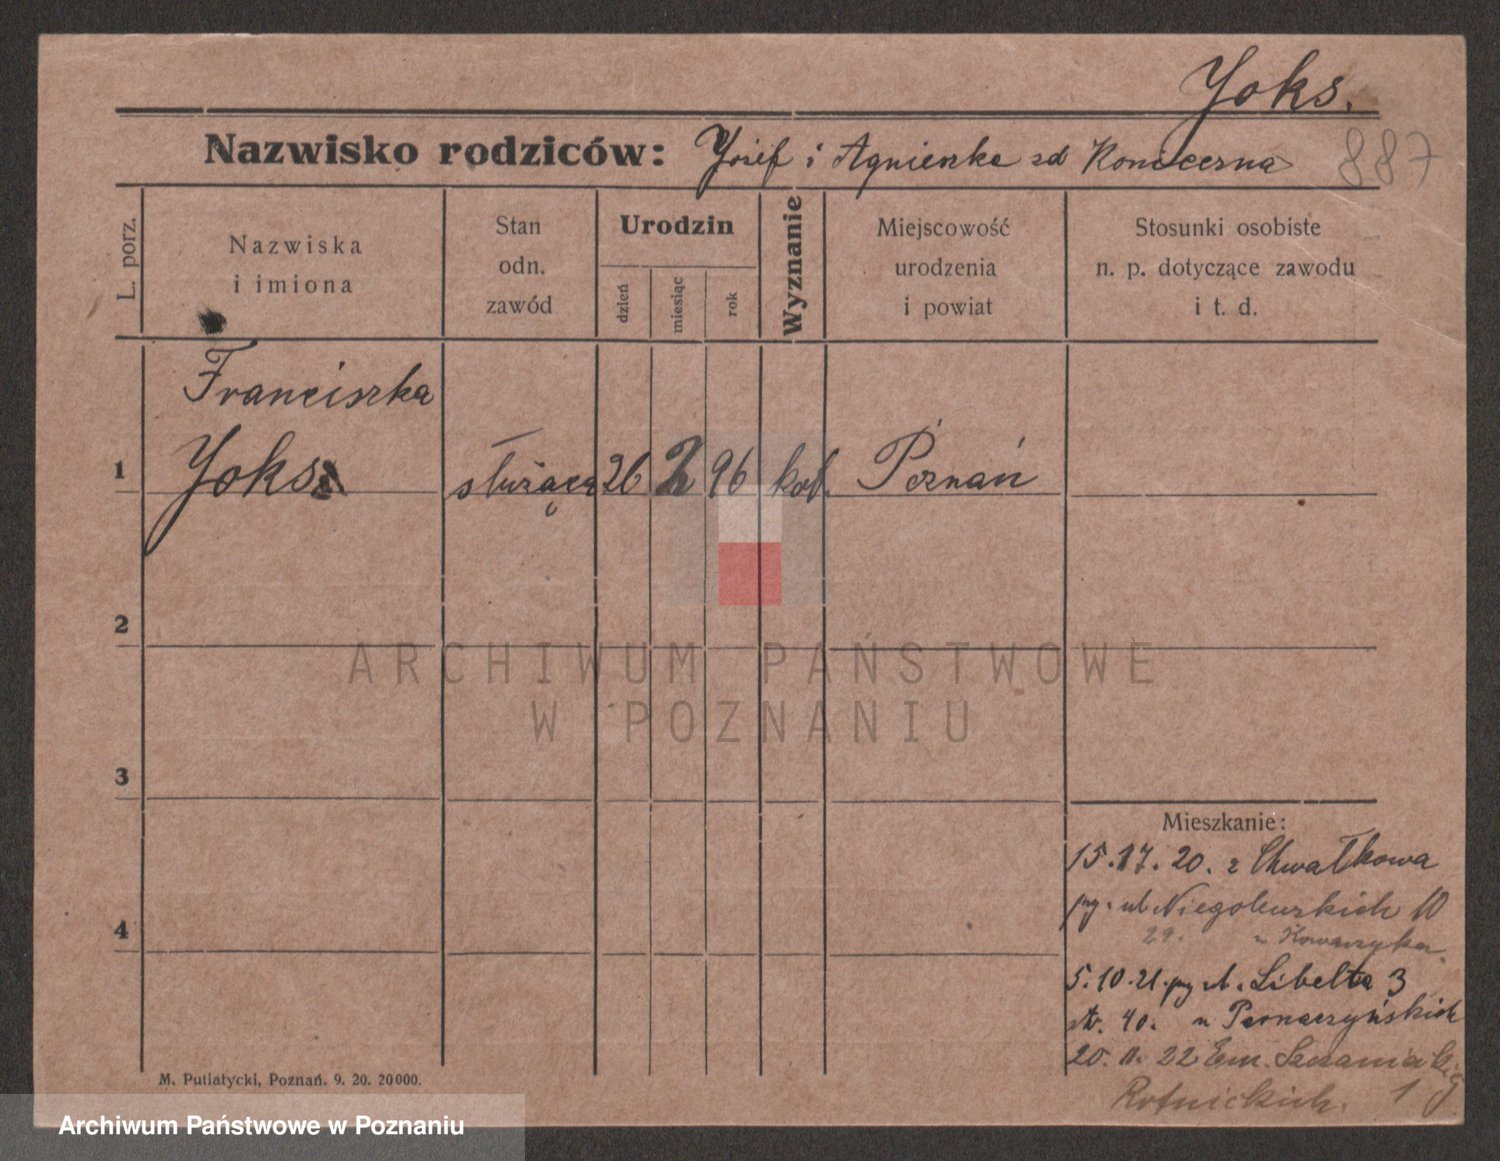 Yoks.
Nazwisko rodziców: Yózef i Agnieszka zd
887
L. porz.
Nazwiska i imiona
Stan odn. zawód
Urodzin
dzień
miesiąc
rok
Wyznanie
Miejscowość urodzenia i powiat
Stosunki osobiste n. p. dotyczące zawodu i t. d.
Franciszka
1 Yoks służąca 26 2 96 kat. Poznań
2
3
4
Mieszkanie:
15.17.20. z Chwałkowa
ul. Niegolewskich 10
29. u Kowarzyka
5.10.21. ul. Libelta 3
40. u
20.11.22 Em. Sczanieckiej 1
Rotnickich.
M. Putiatycki, Poznań. 9. 20. 20000.
ARCHIWUM PAŃSTWOWE
W POZNANIU
Archiwum Państwowe w Poznaniu